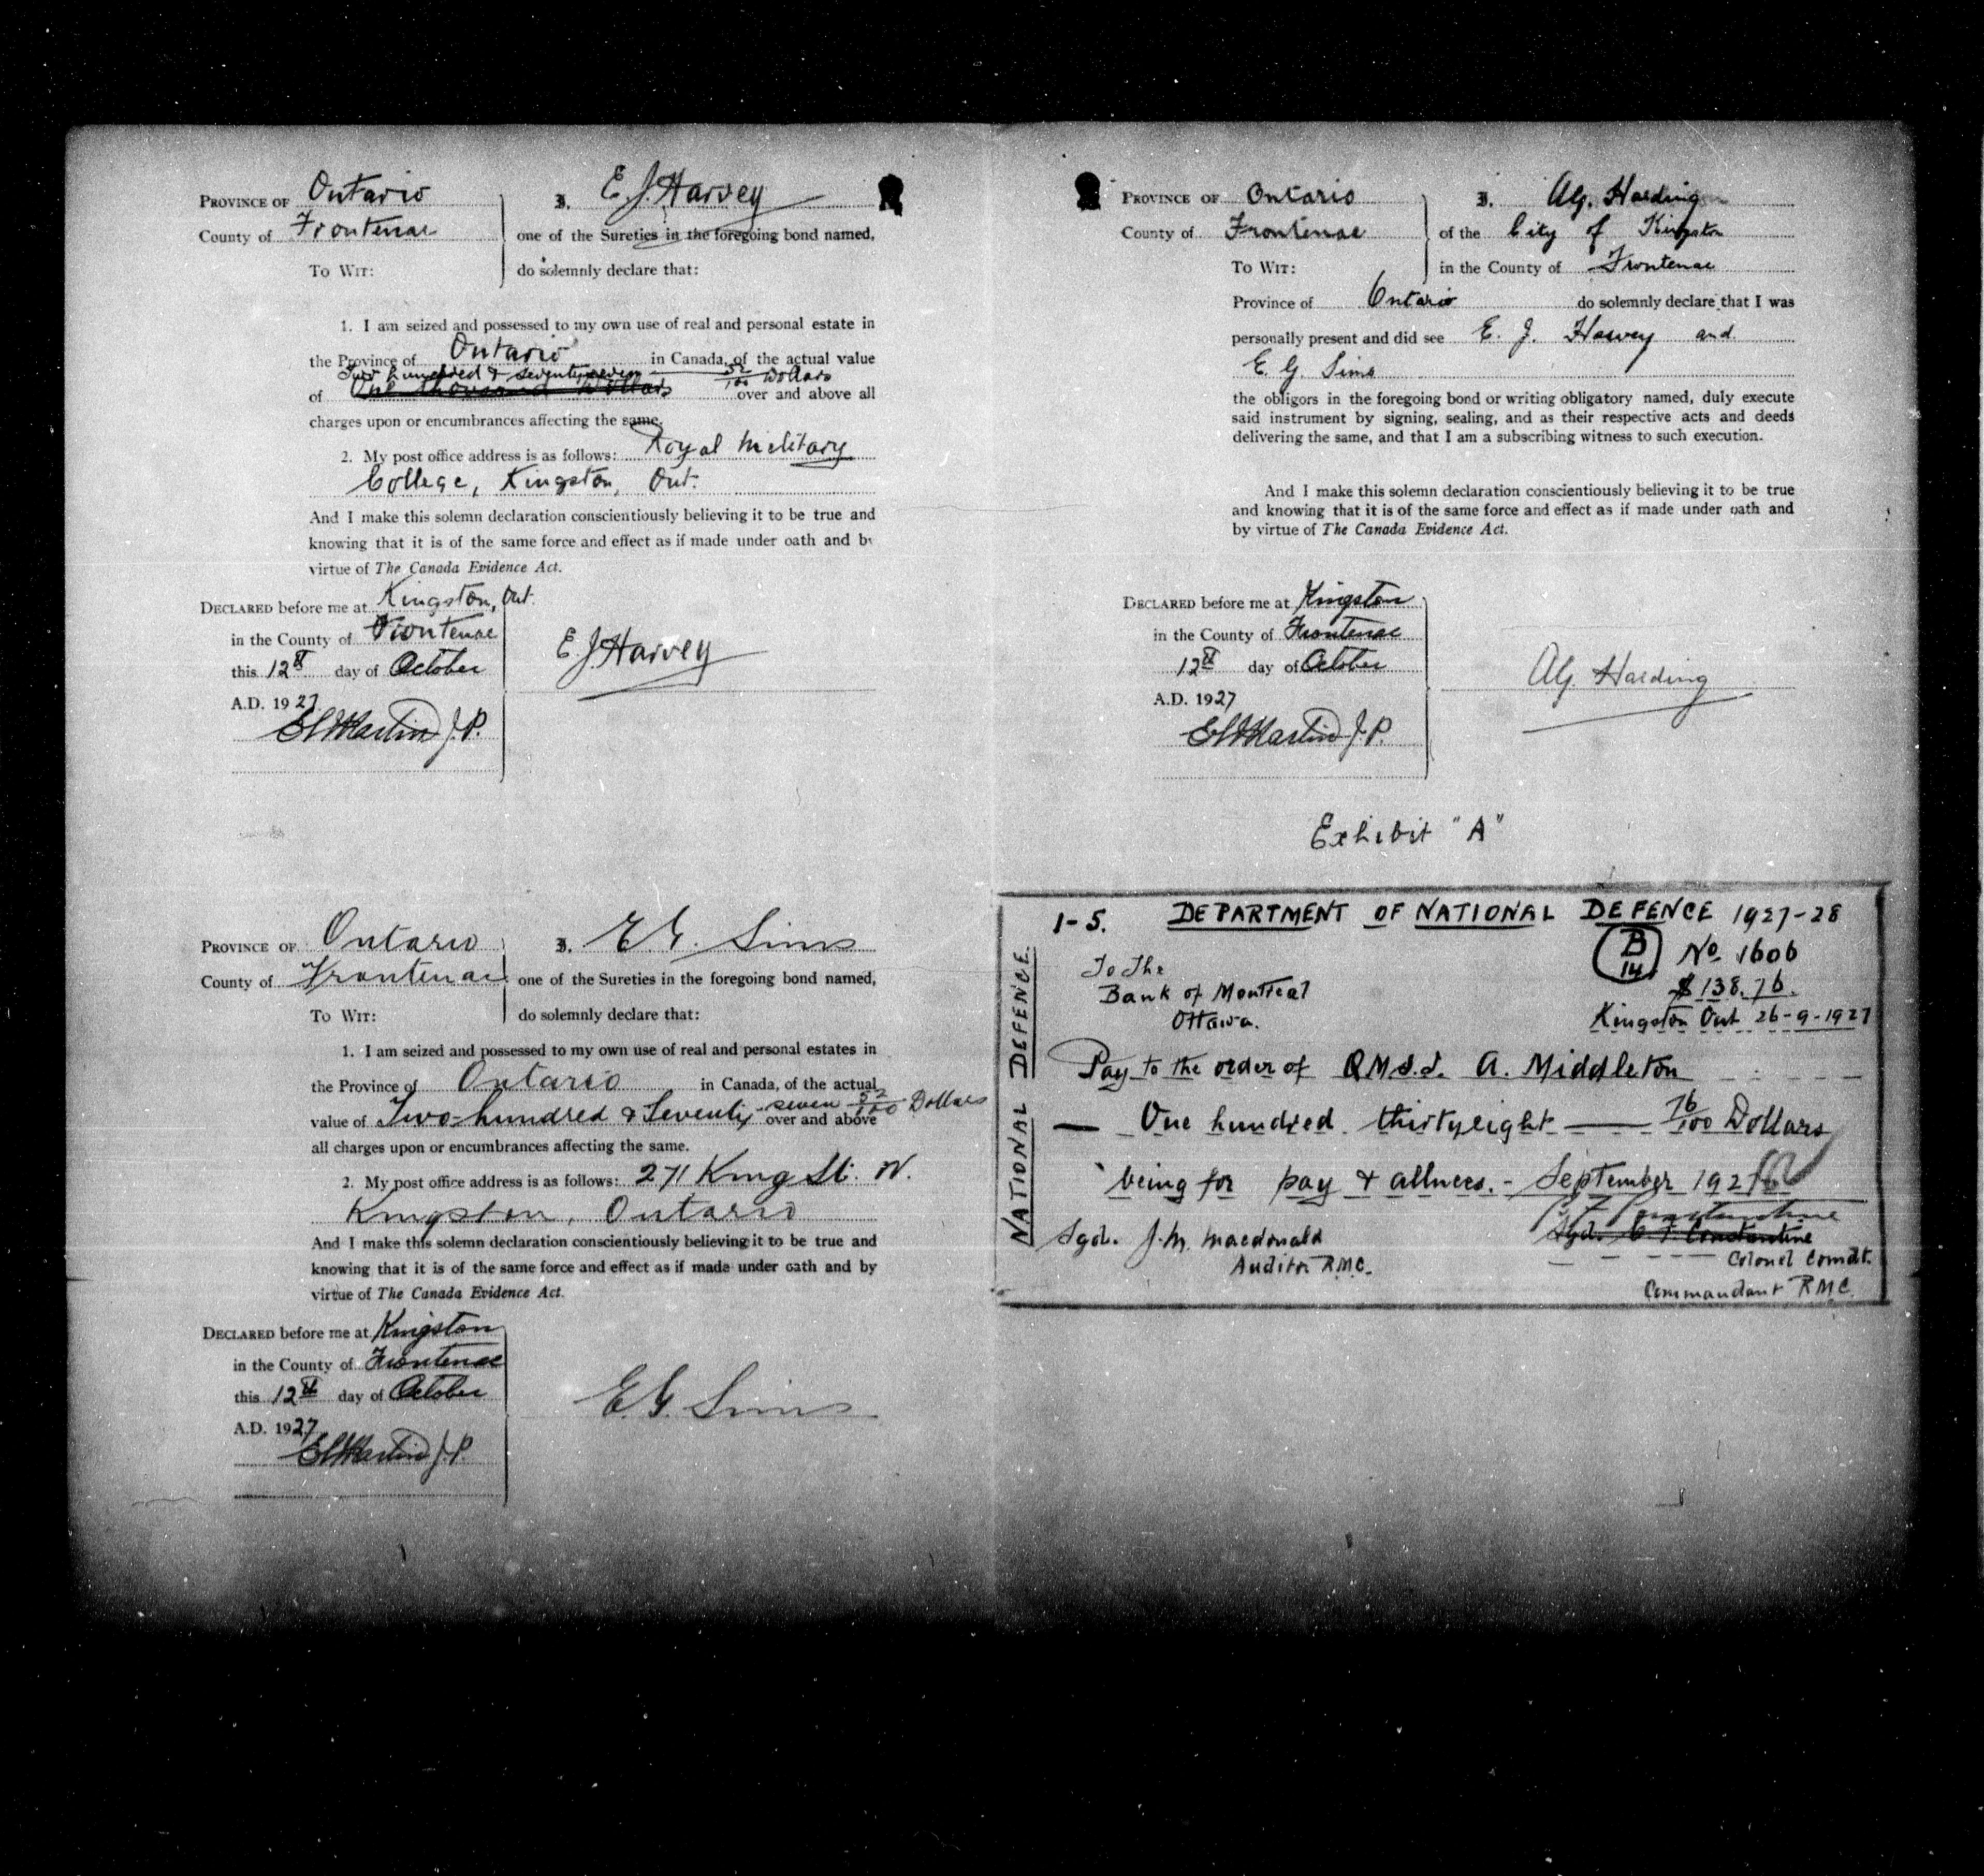 PROVINCE OF Ontario
County of Frontenac
TO WIT:
I, E. J. Harvey
one of the Sureties in the foregoing bond named,
do solemnly declare that:
1. I am seized and possessed to my own use of real and personal estate in
the Province of Ontario in Canada, of the actual value
Two hundred & seventy seven 52/100 Dollars
of One thousand Dollars over and above all
charges upon or encumbrances affecting the same.
2. My post office address is as follows: Royal Military
College, Kingston, Ont.
And I make this solemn declaration conscientiously believing it to be true and
knowing that it is of the same force and effect as if made under oath and by
virtue of The Canada Evidence Act.
DECLARED before me at Kingston, Ont.
in the County of Frontenac
this 12th day of October
A.D. 1927
J.P.
E. J. Harvey
PROVINCE OF Ontario
County of Frontenac
TO WIT:
I, E. G. Sims
one of the Sureties in the foregoing bond named,
do solemnly declare that:
1. I am seized and possessed to my own use of real and personal estates in
the Province of Ontario in Canada, of the actual
value of Two-hundred & Seventy-seven 52/100 Dollars over and above
all charges upon or encumbrances affecting the same.
2. My post office address is as follows: 271 King St. W.
Kingston, Ontario
And I make this solemn declaration conscientiously believing it to be true and
knowing that it is of the same force and effect as if made under oath and by
virtue of The Canada Evidence Act.
DECLARED before me at Kingston
in the County of Frontenac
this 12th day of October
A.D. 1927
J.P.
E. G. Sims
PROVINCE OF Ontario
County of Frontenac
TO WIT:
I, A. G. Harding
of the City of Kingston
in the County of Frontenac
Province of Ontario do solemnly declare that I was
personally present and did see E. J. Harvey and
E. G. Sims
the obligors in the foregoing bond or writing obligatory named, duly execute
said instrument by signing, sealing, and as their respective acts and deeds
delivering the same, and that I am a subscribing witness to such execution.
And I make this solemn declaration conscientiously believing it to be true
and knowing that it is of the same force and effect as if made under oath and
by virtue of The Canada Evidence Act.
DECLARED before me at Kingston
in the County of Frontenac
12th day of October
A.D. 1927
J.P.
A. G. Harding
Exhibit "A"
1-5. DEPARTMENT OF NATIONAL DEFENCE 1927-28
NATIONAL DEFENCE
B
14
No. 1606
To The
Bank of Montreal
Ottawa.
$138.76.
Kingston Ont 26-9-1927
Pay to the order of QMS.I. A. Middleton
One hundred thirtyeight 76/100 Dollars
being for pay & allnces. - September 1927
C F Constantine
Sgd. J. M. Macdonald
Auditor R.M.C.
Sgd. C F Constantine
Colonel Comdt.
Commandant R.M.C.